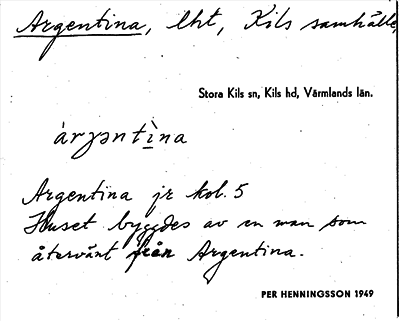 Argentina, lht, Kils samhälle,
Stora Kils sn, Kils hd, Värmlands län.
àrgəntìna
Argentina jr kol. 5
Huset byggdes av en man som
återvänt från Argentina.
PER HENNINGSSON 1949